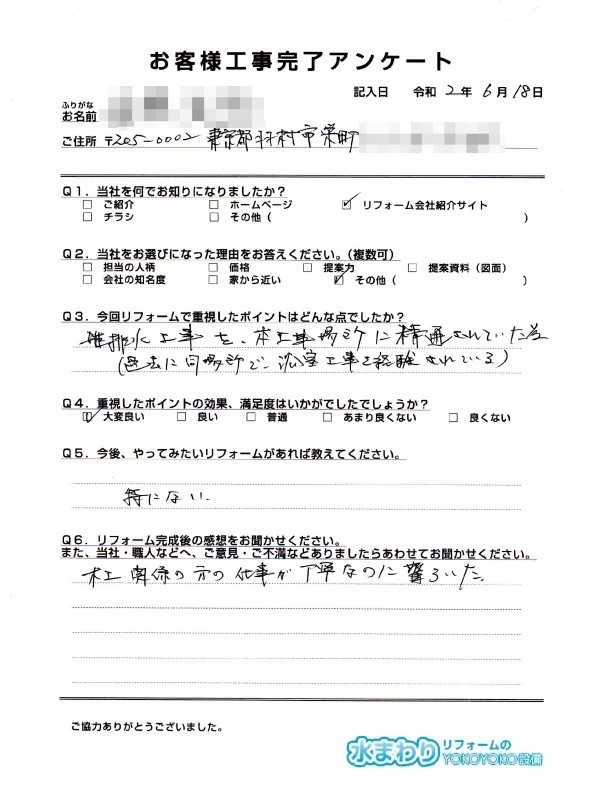 お客様工事完了アンケート
記入日 令和 2年 6月 18日
ふりがな
お名前
ご住所 〒205-0002 東京都羽村市栄町
Q1．当社を何でお知りになりましたか？
□ ご紹介 □ ホームページ ☑ リフォーム会社紹介サイト
□ チラシ □ その他（ ）
Q2．当社をお選びになった理由をお答えください。（複数可）
□ 担当の人柄 □ 価格 □ 提案力 □ 提案資料（図面）
□ 会社の知名度 □ 家から近い ☑ その他（ ）
Q3．今回リフォームで重視したポイントはどんな点でしたか？
排水工事を、本工事場所に精通されていた為
（過去に同場所で、浴室工事を経験されている）
Q4．重視したポイントの効果、満足度はいかがでしたでしょうか？
☑ 大変良い □ 良い □ 普通 □ あまり良くない □ 良くない
Q5．今後、やってみたいリフォームがあれば教えてください。
特にない.
Q6．リフォーム完成後の感想をお聞かせください。
また、当社・職人などへ、ご意見・ご不満などありましたらあわせてお聞かせください。
木工関係の方の仕事が丁寧なのに驚ろいた.
ご協力ありがとうございました。
水まわりリフォームのYOKOYOKO設備